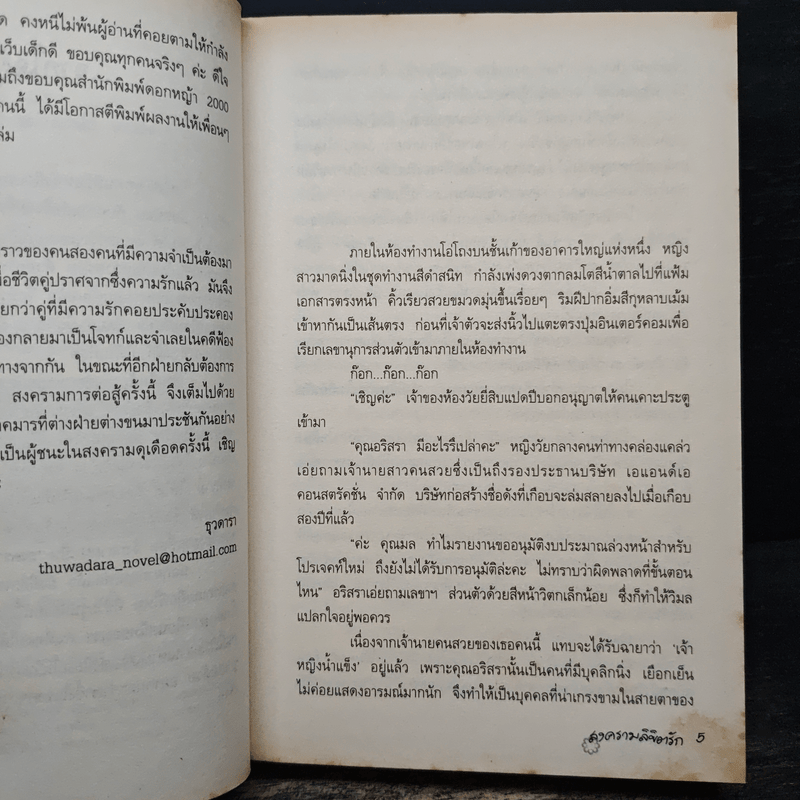 คงหนีไม่พ้นผู้อ่านที่คอยตามให้กำลัง
เว็บเด็กดี ขอบคุณทุกคนจริงๆ ค่ะ ดีใจ
มถึงขอบคุณสำนักพิมพ์ดอกหญ้า 2000
คนนี้ ได้มีโอกาสตีพิมพ์ผลงานให้เพื่อนๆ
ล่ม
ราวของคนสองคนที่มีความจำเป็นต้องมา
อชีวิตคู่ปราศจากซึ่งความรักแล้ว มันจึง
ยกว่าคู่ที่มีความรักคอยประคับประคอง
องกลายมาเป็นโจทก์และจำเลยในคดีฟ้อง
ทางจากกัน ในขณะที่อีกฝ่ายกลับต้องการ
สงครามการต่อสู้ครั้งนี้ จึงเต็มไปด้วย
คมารที่ต่างฝ่ายต่างขนมาประชันกันอย่าง
เป็นผู้ชนะในสงครามดุเดือดครั้งนี้ เชิญ
ธุวดารา
thuwadara_novel@hotmail.com
ภายในห้องทำงานโอ่โถงบนชั้นเก้าของอาคารใหญ่แห่งหนึ่ง หญิง
สาวมาดนิ่งในชุดทำงานสีดำสนิท กำลังเพ่งดวงตากลมโตสีน้ำตาลไปที่แฟ้ม
เอกสารตรงหน้า คิ้วเรียวสวยขมวดมุ่นขึ้นเรื่อยๆ ริมฝีปากอิ่มสีกุหลาบเม้ม
เข้าหากันเป็นเส้นตรง ก่อนที่เจ้าตัวจะส่งนิ้วไปแตะตรงปุ่มอินเตอร์คอมเพื่อ
เรียกเลขานุการส่วนตัวเข้ามาภายในห้องทำงาน
ก๊อก...ก๊อก...ก๊อก
“เชิญค่ะ” เจ้าของห้องวัยยี่สิบแปดปีบอกอนุญาตให้คนเคาะประตู
เข้ามา
“คุณอริสรา มีอะไรรึเปล่าคะ” หญิงวัยกลางคนท่าทางคล่องแคล่ว
เอ่ยถามเจ้านายสาวคนสวยซึ่งเป็นถึงรองประธานบริษัท เอแอนด์เอ
คอนสตรัคชั่น จำกัด บริษัทก่อสร้างชื่อดังที่เกือบจะล่มสลายลงไปเมื่อเกือบ
สองปีที่แล้ว
“ค่ะ คุณมล ทำไมรายงานขออนุมัติงบประมาณล่วงหน้าสำหรับ
โปรเจคท์ใหม่ ถึงยังไม่ได้รับการอนุมัติล่ะคะ ไม่ทราบว่าผิดพลาดที่ขั้นตอน
ไหน” อริสราเอ่ยถามเลขาฯ ส่วนตัวด้วยสีหน้าวิตกเล็กน้อย ซึ่งก็ทำให้วิมล
แปลกใจอยู่พอควร
เนื่องจากเจ้านายคนสวยของเธอคนนี้ แทบจะได้รับฉายาว่า ‘เจ้า
หญิงน้ำแข็ง’ อยู่แล้ว เพราะคุณอริสรานั้นเป็นคนที่มีบุคลิกนิ่ง เยือกเย็น
ไม่ค่อยแสดงอารมณ์มากนัก จึงทำให้เป็นบุคคลที่น่าเกรงขามในสายตาของ
สงครามลิขิตรัก 5